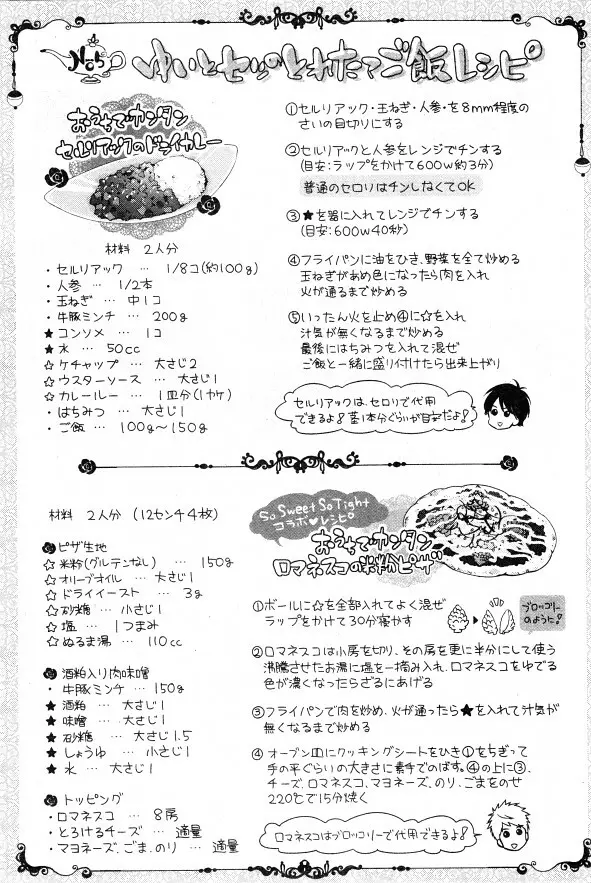 No5
ゆいとセリのとれたてご飯レシピ
おうちでカンタン
セルリアックのドライカレー
材料 2人分
・セルリアック … 1/8コ(約100g)
・人参 … 1/2本
・玉ねぎ … 中1コ
・牛豚ミンチ … 200g
★コンソメ … 1コ
★水 … 50cc
☆ケチャップ … 大さじ2
☆ウスターソース … 大さじ1
☆カレールー … 1皿分(1カケ)
・はちみつ … 大さじ1
・ご飯 … 100g〜150g
①セルリアック・玉ねぎ・人参・を8mm程度の
さいの目切りにする
②セルリアックと人参をレンジでチンする
(目安:ラップをかけて600w約3分)
普通のセロリはチンしなくてOK
③★を器に入れてレンジでチンする
(目安:600w40秒)
④フライパンに油をひき、野菜を全て炒める
玉ねぎがあめ色になったら肉を入れ
火が通るまで炒める
⑤いったん火を止め④に☆を入れ
汁気が無くなるまで炒める
最後にはちみつを入れて混ぜ
ご飯と一緒に盛り付けたら出来上がり
セルリアックは、セロリで代用
できるよ!茎1本分ぐらいが目安だよ!
So Sweet So Tight
コラボ♥レシピ
おうちでカンタン
ロマネスコの米粉ピザ
材料 2人分 (12センチ4枚)
ピザ生地
☆米粉(グルテンなし) … 150g
☆オリーブオイル … 大さじ1
☆ドライイースト … 3g
☆砂糖 … 小さじ1
☆塩 … 1つまみ
☆ぬるま湯 … 110cc
酒粕入り肉味噌
・牛豚ミンチ … 150g
★酒粕 … 大さじ1
★味噌 … 大さじ1
★砂糖 … 大さじ1.5
★しょうゆ … 小さじ1
★水 … 大さじ1
トッピング
・ロマネスコ … 8房
・とろけるチーズ … 適量
・マヨネーズ、ごま、のり … 適量
①ボールに☆を全部入れてよく混ぜ
ラップをかけて30分寝かす
ブロッコリー
のように!
②ロマネスコは小房を切り、その房を更に半分にして使う
沸騰させたお湯に塩を一摘み入れ、ロマネスコをゆでる
色が濃くなったらざるにあげる
③フライパンで肉を炒め、火が通ったら★を入れて汁気が
無くなるまで炒める
④オーブン皿にクッキングシートをひき①をちぎって
手の平ぐらいの大きさに素手でのばす。④の上に③、
チーズ、ロマネスコ、マヨネーズ、のり、ごまをのせ
220℃で15分焼く
ロマネスコはブロッコリーで代用できるよ!